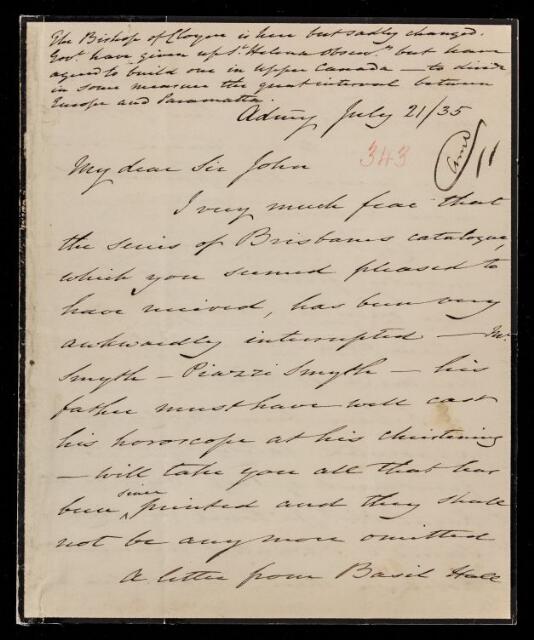 The Bishop of Cloyne is here but sadly changed.
Govt. have given up St. Helena Observy. but have
agreed to build one in Upper Canada — to divide
in some measure the great interval between
Europe and Paramatta.
Admty July 21/35
343
11
My dear Sir John
I very much fear that
the series of Brisbanes catalogue,
which you seemed pleased to
have received, has been very
awkwardly interrupted — Mr.
Smyth — Piazzi Smyth — his
father must have well cast
his horoscope at his christening
— will take you all that has
been since printed and they shall
not be any more omitted
A letter from Basil Hall